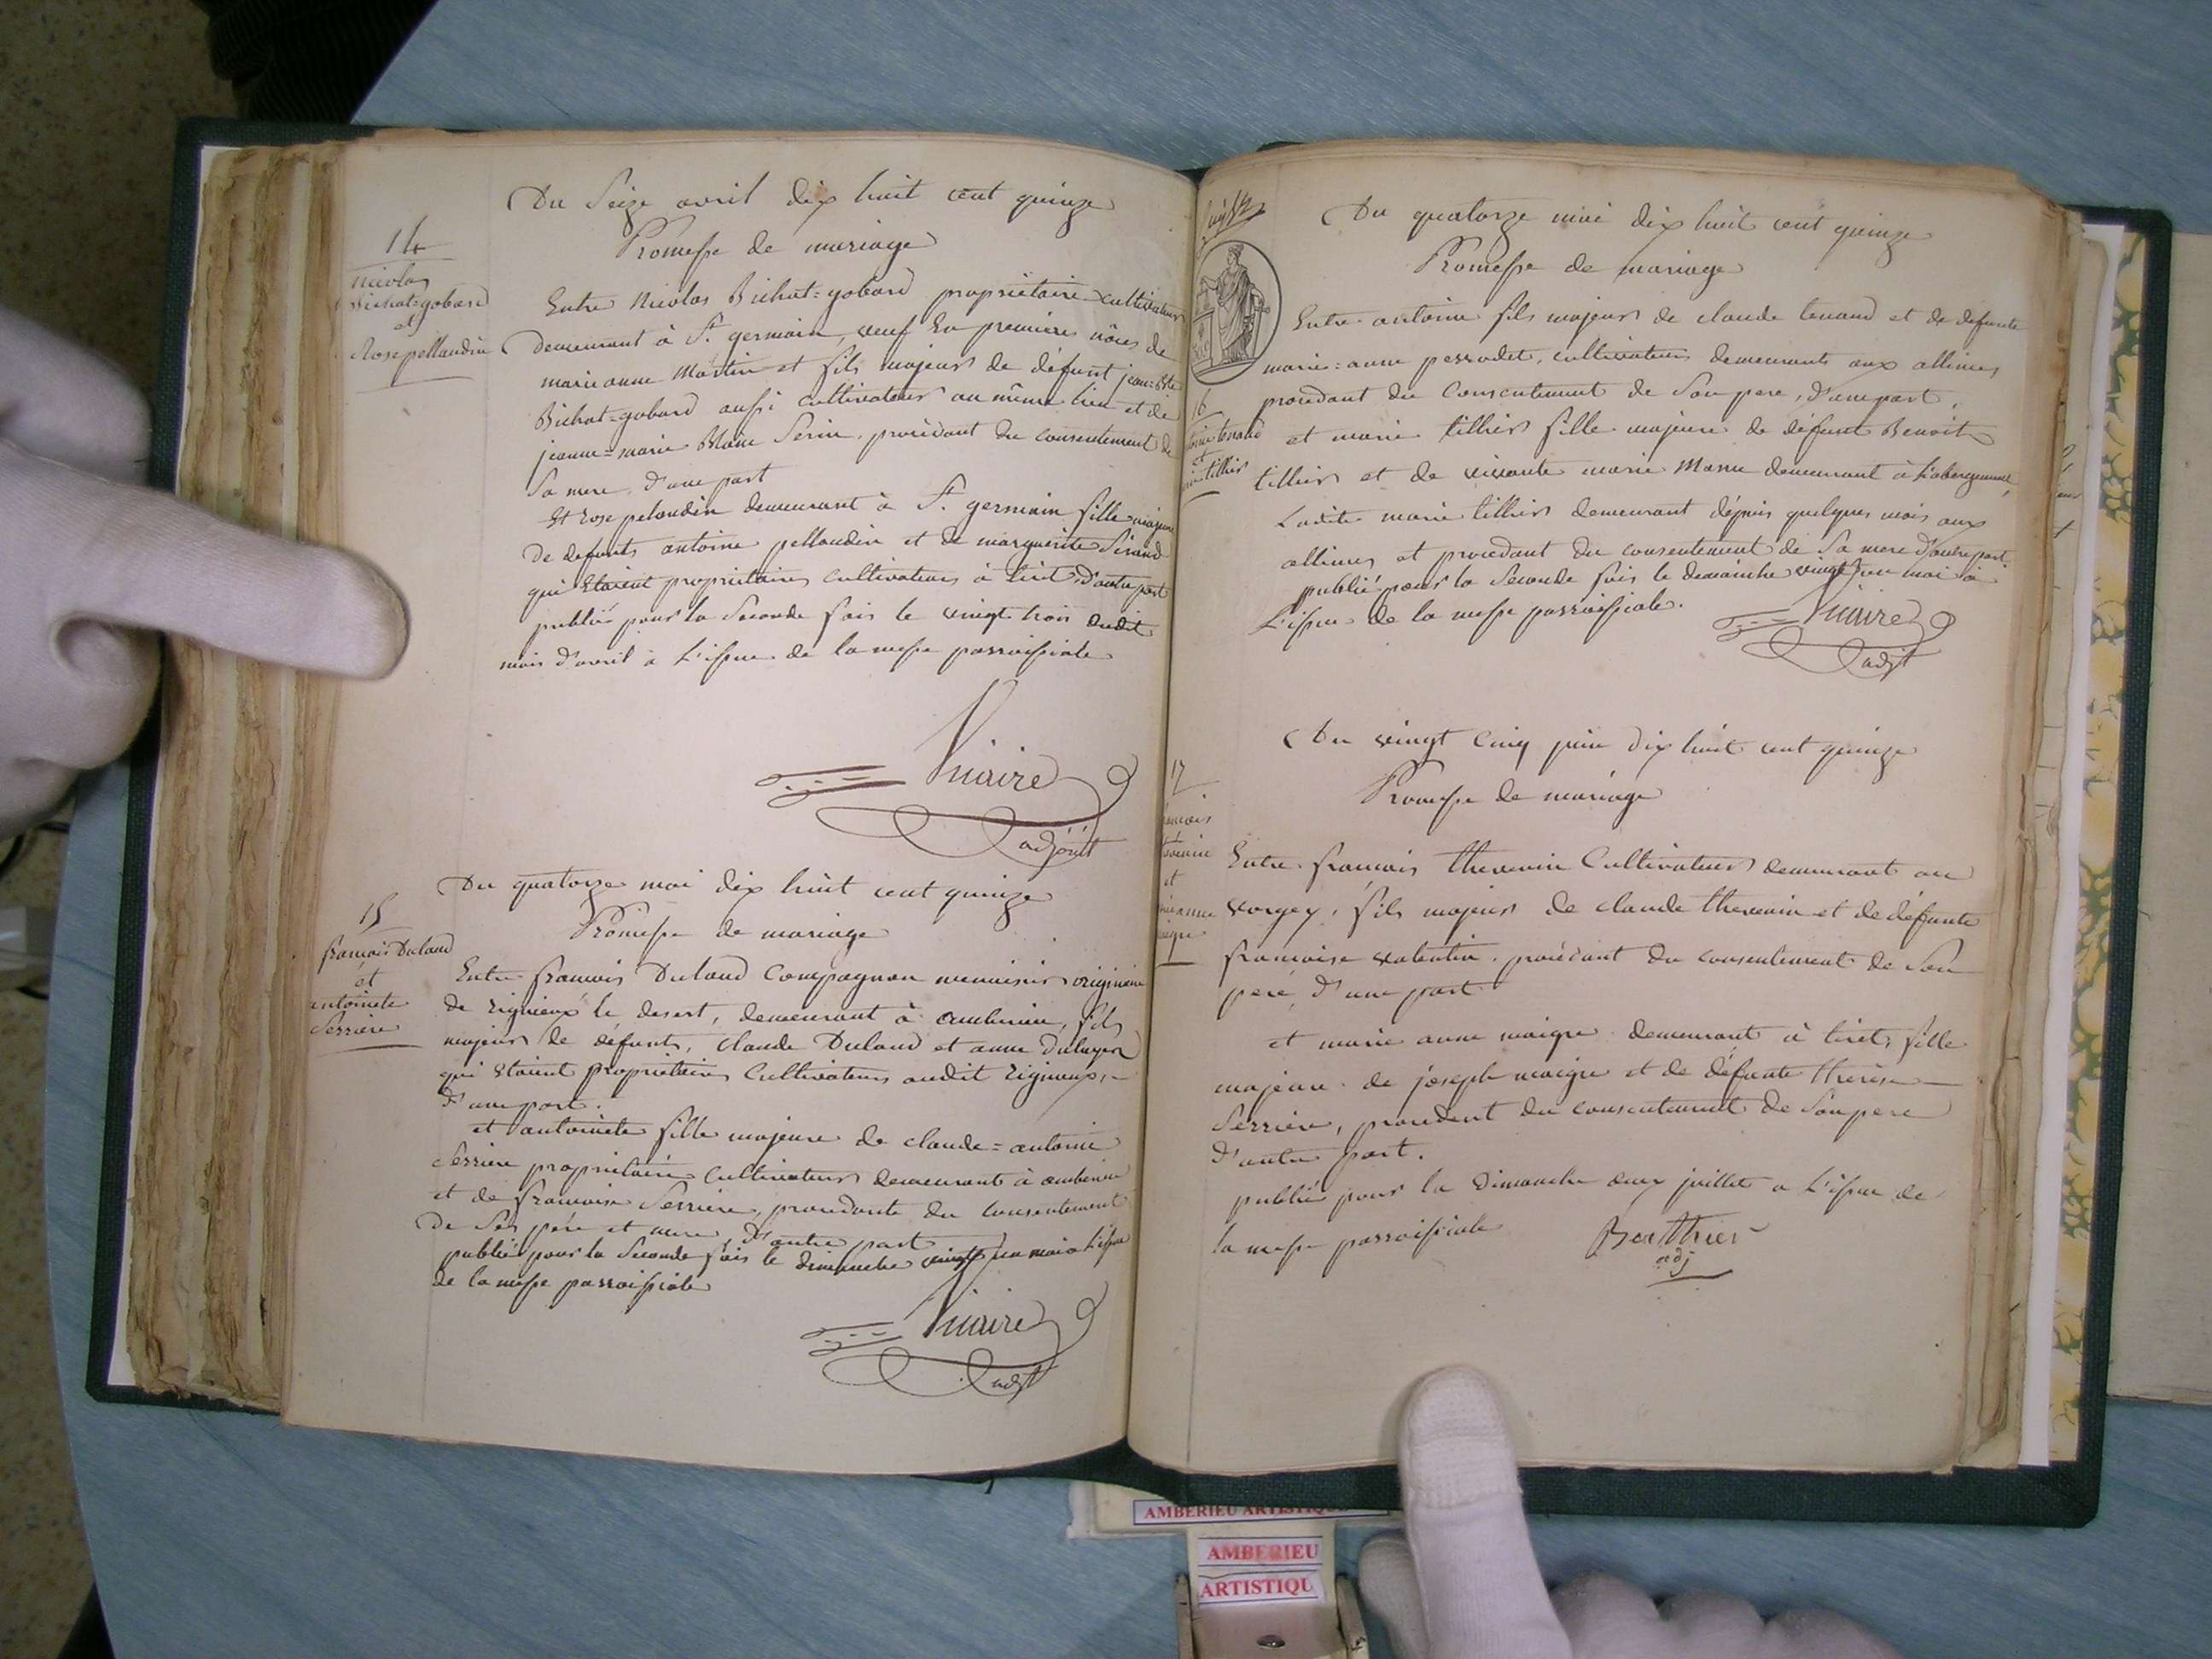 Du Seize avril dix huit cent quinze
Promesse de mariage
14
Nicolas
Bichat=gobard
et
Rose pellaudin
Entre Nicolas Bichat=gobard propriétaire cultivateur
demeurant à St. germain, veuf en premiere nôces de
marie anne Martin et fils majeur de défunt jean=Bte
Bichat=gobard aussi cultivateur au même lieu et de
jeanne=marie Blaise Serin, procédant du consentement de
Sa mere, d'une part
Et rose pelaudin demeurant à St. germain fille majeure
de defunts antoine pellaudin et de marguerite Sirand
qui Etaient propriétaires cultivateurs à tiret d'autre part
publié pour la Seconde fois le vingt trois dudit
mois d'avril à L'issue de la messe parroissiale
Viaire
adjoint
Du quatorze mai dix huit cent quinze
Promesse de mariage
15
francois Duland
et
antoinete
Serriere
Entre francois Duland Compagnon menuisier originaire
de rignieux le desert, demeurant à amberieu, fils
majeur de défunts, claude Duland et anne
qui Etaient propriétaires Cultivateurs audit rignieux,
d'une part.
et antoinete fille majeure de claude=antoine
Serriere propriétaire Cultivateur demeurant à amberieu
et de francoise Serriere, procedante du consentement
de Ses père et mere, d'autre part
publié pour la Seconde fois le dimanche vingt un mai a L'issue
de la messe parroissiale
Viaire
adjt
Du quatorze mai dix huit cent quinze
Promesse de mariage
16
tenand
et
tillier
Entre antoine fils majeur de claude tenand et de defunte
marie=anne perrodet, cultivateurs demeurants aux allimes
procedant du Consentement de Son pere, d'une part,
et marie tillier fille majeure de défunt Benoit
tillier et de vivante marie demeurant à L'abergement,
Ladite marie tillier demeurant dépuis quelques mois aux
allimes et procedant du consentement de Sa mere d'autre part
publié pour la Seconde fois le dimanche vingt un mai à
L'issue de la messe parroissiale.
Viaire
adjt
Du vingt cinq juin dix huit cent quinze
Promesse de mariage
17
et
Entre francois thevenin Cultivateur demeurant au
vorgey, fils majeur de claude thevenin et de défunte
francoise valentin, procédant du consentement de Son
pere, d'une part
et marie anne maigre demeurant à tiret, fille
majeure de joseph maigre et de défunte therese
Serriere, procedent du consentement de Son pere
d'autre part.
publié pour la Dimanche deux juillet a L'issue de
la messe parroissiale
Berthier
adj
AMBERIEU ARTISTIQUE
AMBERIEU
ARTISTIQU